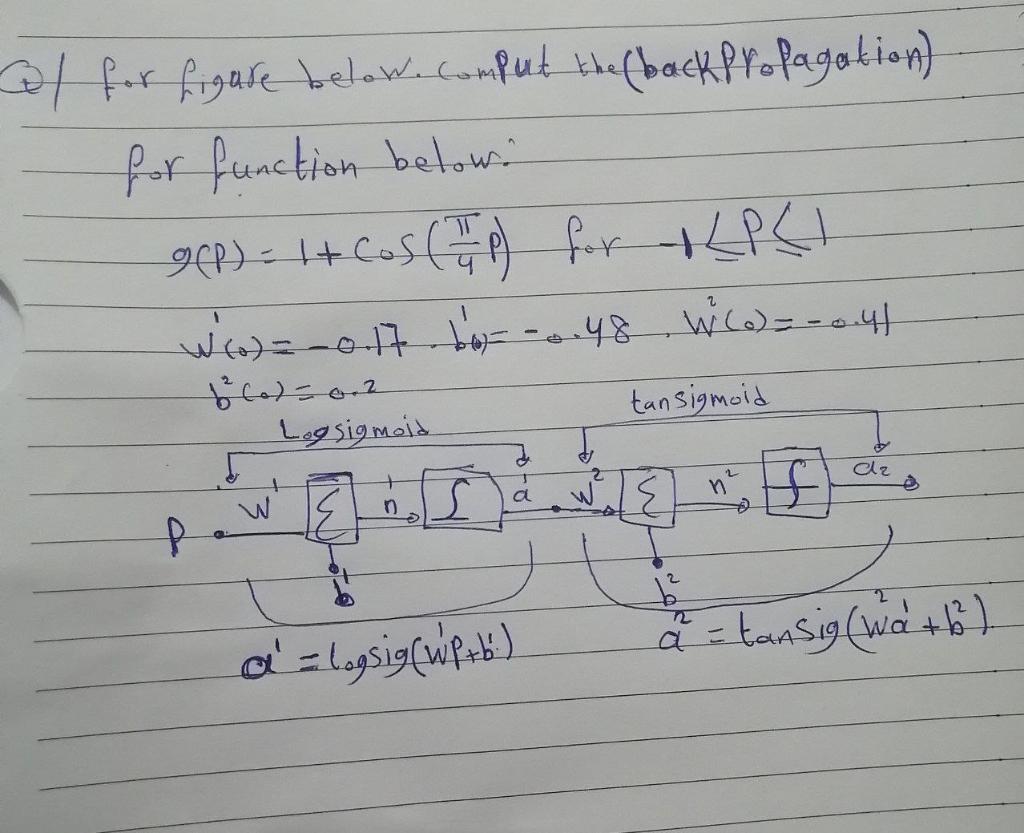 Q/ for figure below. comput the (backPropagation)
for function below:
g(P) = 1 + Cos(π/4 P) for -1 ≤ P ≤ 1
W¹(0) = -0.17 . b¹(0) = -0.48 . W²(0) = -0.41
b²(0) = 0.2
tansigmoid
Logsigmoid
P W¹ Σ n¹ ∫ a¹ W² Σ n² f a2
b¹ b²
a¹ = Logsig(W¹P+b¹) a² = tansig(W²a¹+b²)